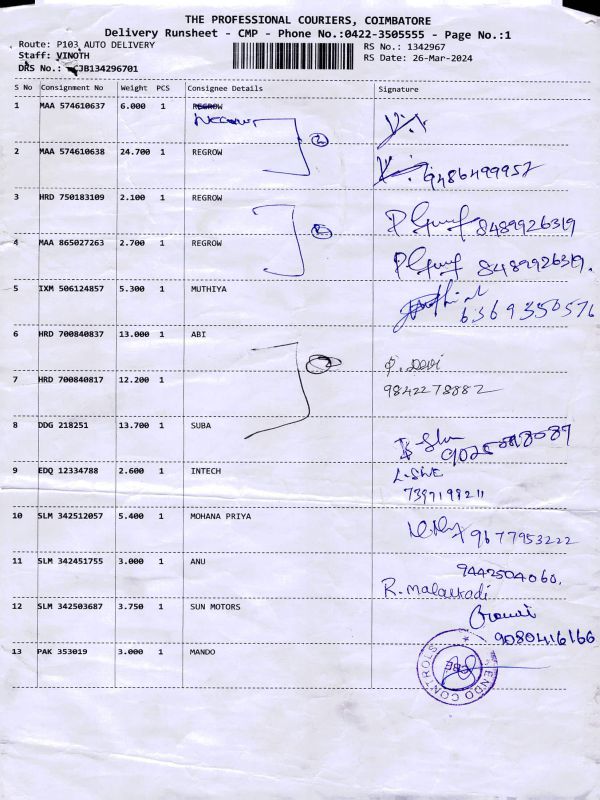 THE PROFESSIONAL COURIERS, COIMBATORE
Delivery Runsheet - CMP - Phone No.:0422-3505555 - Page No.:1
Route: P103 AUTO DELIVERY RS No.: 1342967
Staff: VINOTH RS Date: 26-Mar-2024
DRS No.: CJB134296701
S No Consignment No Weight PCS Consignee Details Signature
1 MAA 574610637 6.000 1 REGROW
2 MAA 574610638 24.700 1 REGROW
2
9486499957
3 HRD 750183109 2.100 1 REGROW
8489926319
4 MAA 865027263 2.700 1 REGROW
8489926319.
5 IXM 506124857 5.300 1 MUTHIYA
6369350576
6 HRD 700840837 13.000 1 ABI
P. Devi
7 HRD 700840817 12.200 1
9842278882
8 DDG 218251 13.700 1 SUBA
9 EDQ 12334788 2.600 1 INTECH
7397199211
10 SLM 342512057 5.400 1 MOHANA PRIYA
9677953222
11 SLM 342451755 3.000 1 ANU
9442504060.
12 SLM 342503687 3.750 1 SUN MOTORS
9080416166
13 PAK 353019 3.000 1 MANDO
ENDO CONTROLS
CBE